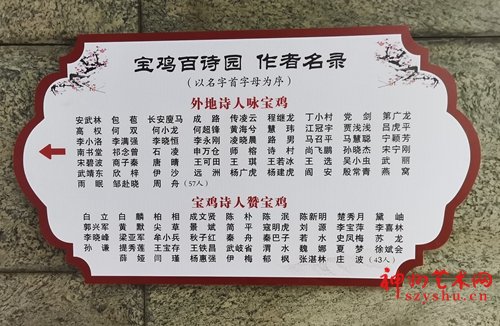 宝鸡百诗园 作者名录
(以名字首字母为序)
外地诗人咏宝鸡
安武林 包苞 长安瘦马 成路 传凌云 程继龙 丁小村 党剑 第广龙
高权 何双 何小龙 何超锋 黄海兮 慧玮 江冠宇 贾浅浅 吕虎平
李小洛 李满强 李晓恒 李永刚 凌晓晨 路男 马召平 马慧聪 宁颖芳
南书堂 祁念曾 三凌 申万仓 师榕 诗村 尚飞鹏 孙晓杰 宋宁刚
宋碧波 商子秦 唐晴 王可田 王琪 王若冰 王选 吴小虫 武丽
武靖东 欣梓 伊沙 远洲 杨广虎 杨建虎 阎安 殷常青 燕窝
雨眠 邹赴晓 周舟 (57人)
宝鸡诗人赞宝鸡
白立 白麟 柏相 成文贤 陈朴 陈泯 陈新明 楚秀月 黛岫
郭兴军 黄默 尖草 景斌 简平 寇明虎 刘源 李宝萍 李喜林
李晓峰 梁亚军 牟小兵 秋子红 秦舟 秦巴子 若水 史凤梅 苏龙
孙谦 提秀莲 王宝存 王铁昌 武岐省 渭水 魏娜 夏梦 徐斌会
薛娅 闫瑾 杨惠强 伊梅 郁枫 张湛林 庄波 (43人)
神州艺术网
szyshu.cn